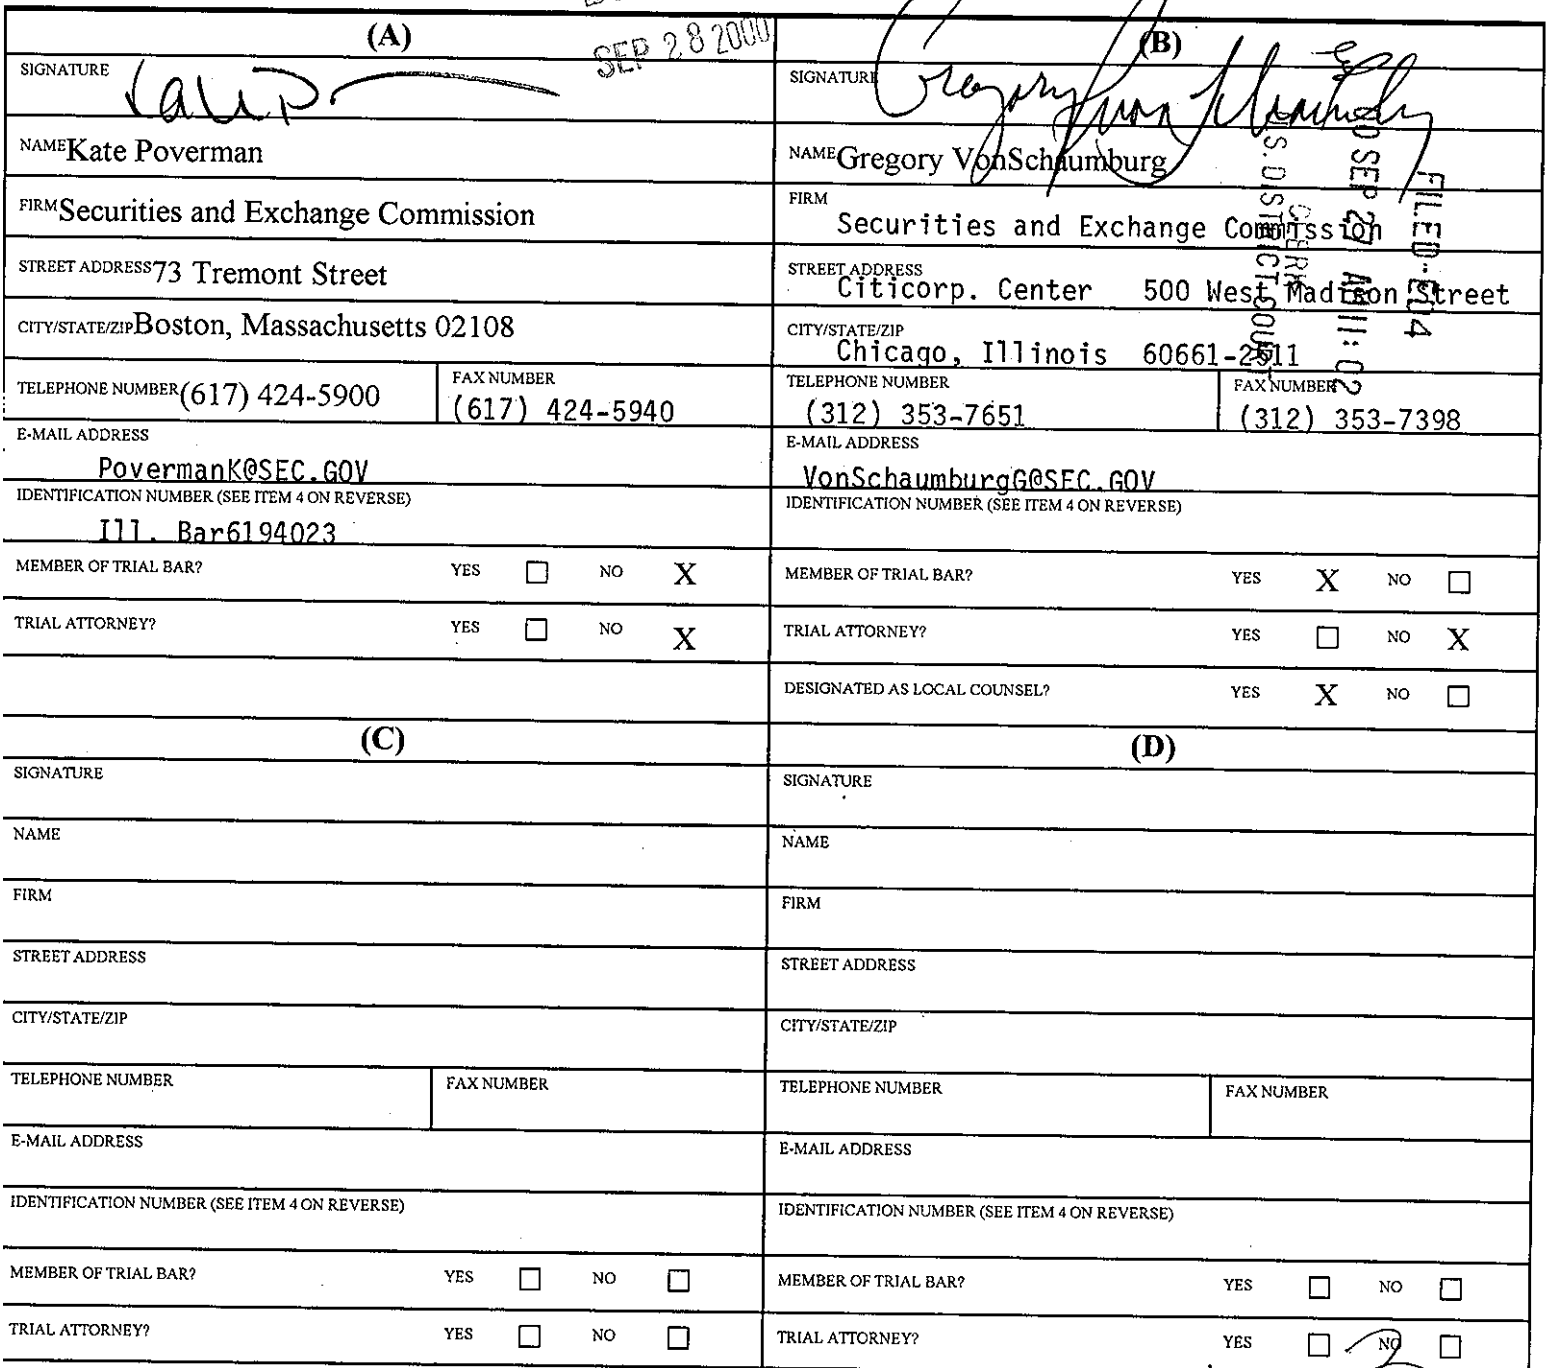 (A)
SEP 28 2000
SIGNATURE
NAME Kate Poverman
FIRM Securities and Exchange Commission
STREET ADDRESS 73 Tremont Street
CITY/STATE/ZIP Boston, Massachusetts 02108
TELEPHONE NUMBER (617) 424-5900
FAX NUMBER
(617) 424-5940
E-MAIL ADDRESS
PovermanK@SEC.GOV
IDENTIFICATION NUMBER (SEE ITEM 4 ON REVERSE)
Ill. Bar6194023
MEMBER OF TRIAL BAR? YES ☐ NO X
TRIAL ATTORNEY? YES ☐ NO X
(B)
SIGNATURE
NAME Gregory VonSchaumburg
FIRM
Securities and Exchange Commission
STREET ADDRESS
Citicorp. Center 500 West Madison Street
CITY/STATE/ZIP
Chicago, Illinois 60661-2511
TELEPHONE NUMBER
(312) 353-7651
FAX NUMBER
(312) 353-7398
E-MAIL ADDRESS
VonSchaumburgG@SEC.GOV
IDENTIFICATION NUMBER (SEE ITEM 4 ON REVERSE)
MEMBER OF TRIAL BAR? YES X NO ☐
TRIAL ATTORNEY? YES ☐ NO X
DESIGNATED AS LOCAL COUNSEL? YES X NO ☐
FILED-ED4
0 SEP 27 AM 11:02
CLERK
S. DISTRICT COURT
(C)
SIGNATURE
NAME
FIRM
STREET ADDRESS
CITY/STATE/ZIP
TELEPHONE NUMBER
FAX NUMBER
E-MAIL ADDRESS
IDENTIFICATION NUMBER (SEE ITEM 4 ON REVERSE)
MEMBER OF TRIAL BAR? YES ☐ NO ☐
TRIAL ATTORNEY? YES ☐ NO ☐
(D)
SIGNATURE
NAME
FIRM
STREET ADDRESS
CITY/STATE/ZIP
TELEPHONE NUMBER
FAX NUMBER
E-MAIL ADDRESS
IDENTIFICATION NUMBER (SEE ITEM 4 ON REVERSE)
MEMBER OF TRIAL BAR? YES ☐ NO ☐
TRIAL ATTORNEY? YES ☐ NO ☐